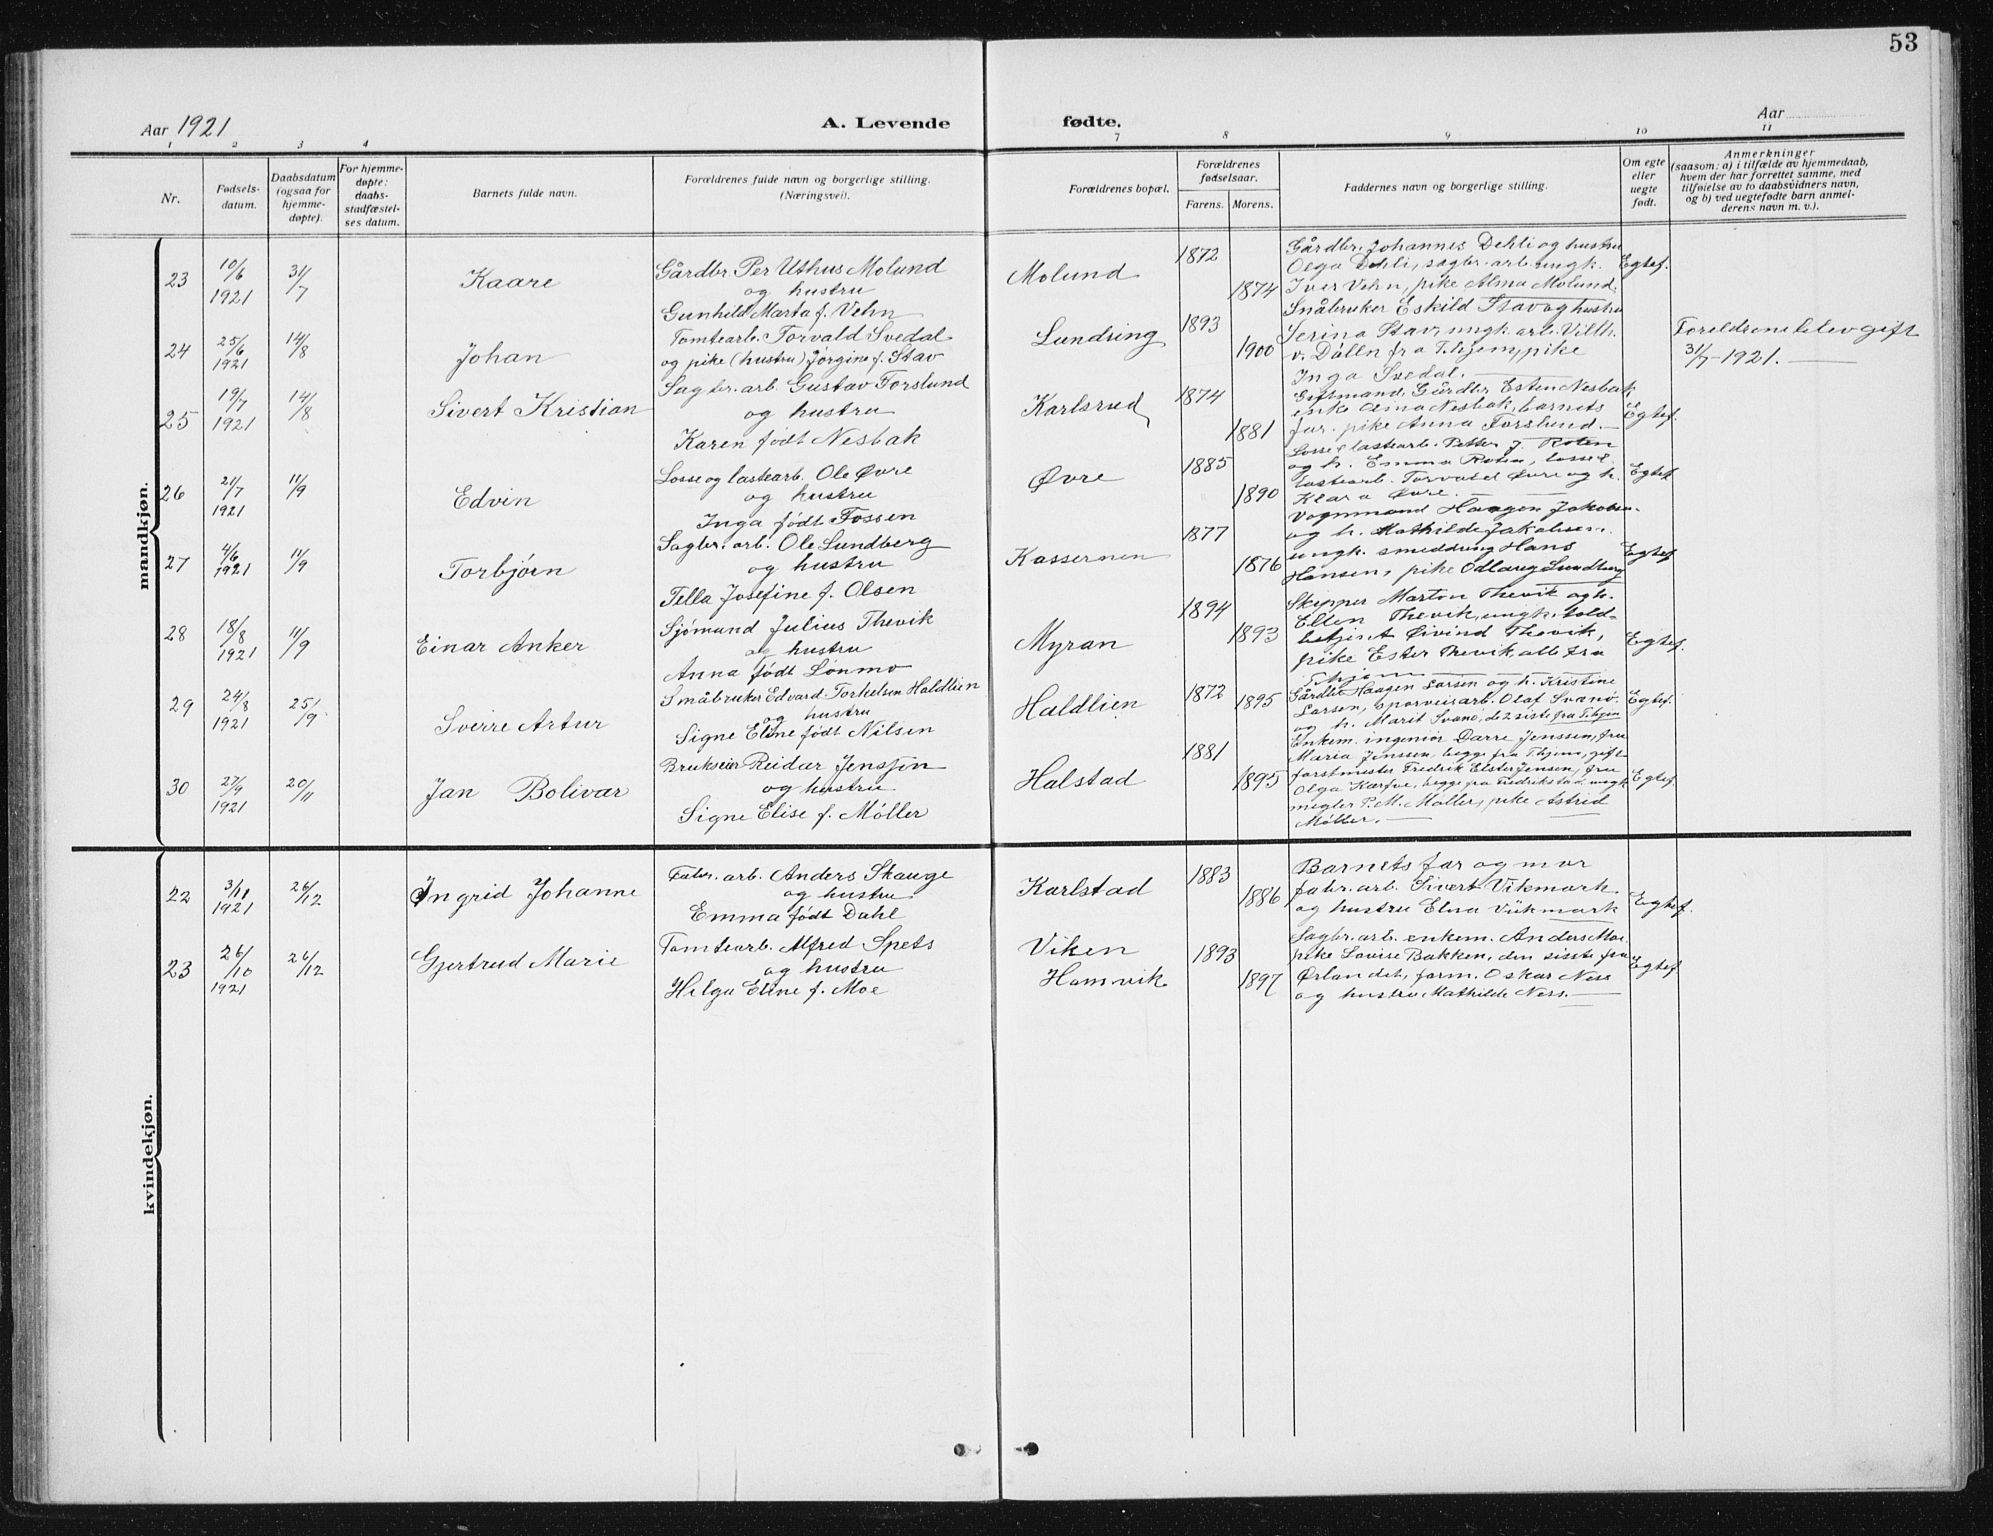 53
Aar 1921
A. Levende
fødte.
Aar
1 2 3 4
7 8 9 10 11
Nr.
Fødsels-
datum.
Daabsdatum
(ogsaa for
hjemme-
døpte).
For hjemme-
døpte:
daabs-
stadfæstel-
ses datum.
Barnets fulde navn.
Forældrenes fulde navn og borgerlige stilling.
(Næringsvei).
Forældrenes bopæl.
Forældrenes
fødselsaar.
Farens. Morens.
Faddernes navn og borgerlige stilling.
Om egte
eller
uegte
født.
Anmerkninger
(saasom: a) i tilfælde av hjemmedaab,
hvem der har forrettet samme, med
tilføielse av to daabsvidners navn,
og b) ved uegtefødte barn anmel-
derens navn m. v.).
mandkjøn.
23
10/6
1921
31/7
Kaare
Gårdbr. Per Uthus Molund
og hustru
Gunhild Marta f. Vehn
Molund
1872
1874
Gårdbr. Johannes Dehli og hustru
Olga Dehli, sagbr. arb. ungk.
Iver Vehn, pike Alma Molund.
Egtef.
24
25/6
1921
14/8
Johan
Tomtearb. Torvald Svedal
og pike (hustru) Jørgine f. Stav
Lundring
1893
1900
Småbruker Eskild Stav og hustru
Serina Stav, ungk. arb. Vilh.
v. Dålln fra T.hjem, pike
Inga Svedal.
Foreldrene blev gift
31/7-1921.
25
19/7
1921
14/8
Sivert Kristian
Sagbr. arb. Gustav Forslund
og hustru
Karen født Nesbak
Karlsrud
1874
1881
Giftmand, Gårdbr. Esten Nesbak,
enke Anna Nesbak, barnets
far, pike Anna Forslund.
Egtef.
26
21/7
1921
11/9
Edvin
Losse og lastearb. Ole Øvre
og hustru
Inga født Fossen
Øvre
1885
1890
Losse & lastearb. Petter J. Roten
og h. Emma Roten, losse &
lastearb. Torvald Øvre og h.
Klara Øvre.
Egtef.
27
4/6
1921
11/9
Torbjørn
Sagbr. arb. Ole Lundberg
og hustru
Tella Josefine f. Olsen
Kassernen
1877
1876
Vognmand Haagen Jakobsen
og h. Mathilde Jakobsen,
ungk. smeddreng Hans
Hansen, pike Odlaug Lundberg
Egtef.
28
18/8
1921
11/9
Einar Anker
Sjømand Julius Thevik
og hustru
Anna født Lønmo
Myran
1894
1893
Skipper Marton Thevik og h.
Ellen Thevik, ungk. told-
betjent Øivind Thevik,
pike Ester Thevik alle fra
T.hjem
Egtef.
29
24/8
1921
25/9
Sverre Artur
Småbruker Edvard Torkelsen Haldlien
og hustru
Signe Eline født Nilsen
Haldlien
1872
1895
Gårdbr. Haagen Larsen og h. Kristine
Larsen, sporveisarb. Olaf Svanø
og h. Marit Svanø, de 2 siste fra T.hjem
Egtef.
30
27/9
1921
20/11
Jan Bolivar
Brukseier Reidar Jenssen
og hustru
Signe Elise f. Møller
Halstad
1881
1895
Enkem. ingeniør Darre Jenssen, fru
Maria Jenssen, begge fra Thjem, gift
forstmester Fredrik Elster Jensen, fru
Olga Kærfve, begge fra Fredrikstad, ungk.
megler P. M. Møller, pike Astrid
Møller.
Egtef.
kvindekjøn.
22
3/11
1921
26/12
Ingrid Johanne
Fabr. arb. Anders Skauge
og hustru
Emma født Dahl
Karlstad
1883
1886
Barnets far og mor
fabr. arb. Sivert Vikmark
og hustru Elna Vikmark
Egtef.
23
26/10
1921
26/12
Gjertrud Marie
Tomtearb. Alfred Spets
og hustru
Helga Eline f. Moe
Viken
Hamvik
1893
1897
Sagbr. arb. enkem. Anders Moe,
pike Lovise Bakken, den sisste fra
Ørlandet, form. Oskar Ness
og hustru Mathilde Ness.
Egtef.